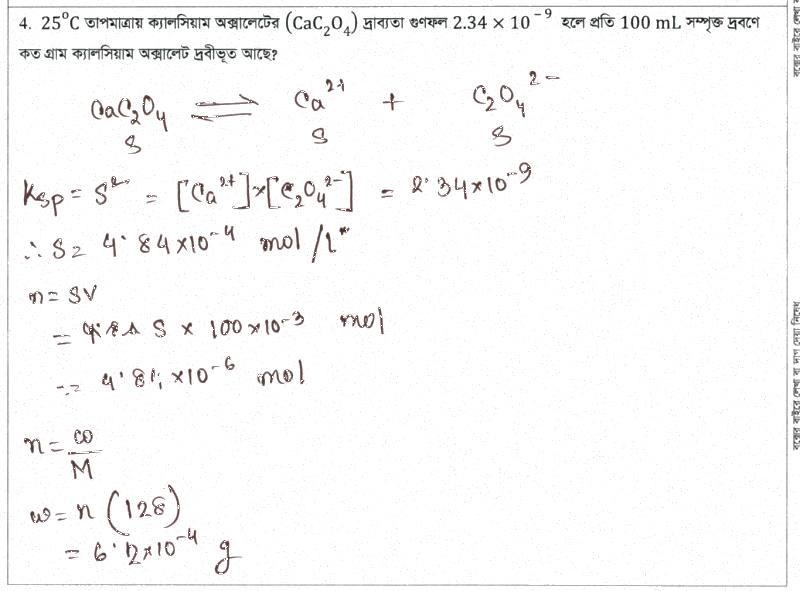 4. 25°C তাপমাত্রায় ক্যালসিয়াম অক্সালেটের (CaC₂O₄) দ্রাব্যতা গুণফল 2.34 × 10⁻⁹ হলে প্রতি 100 mL সম্পৃক্ত দ্রবণে
কত গ্রাম ক্যালসিয়াম অক্সালেট দ্রবীভূত আছে?
CaC₂O₄ ⇌ Ca²⁺ + C₂O₄²⁻
S S S
Ksp = S² = [Ca²⁺]×[C₂O₄²⁻] = 2.34×10⁻⁹
∴ S = 4.84×10⁻⁴ mol/L
n = SV
= S × 100×10⁻³ mol
= 4.84×10⁻⁶ mol
n = w/M
w = n (128)
= 6.2×10⁻⁴ g